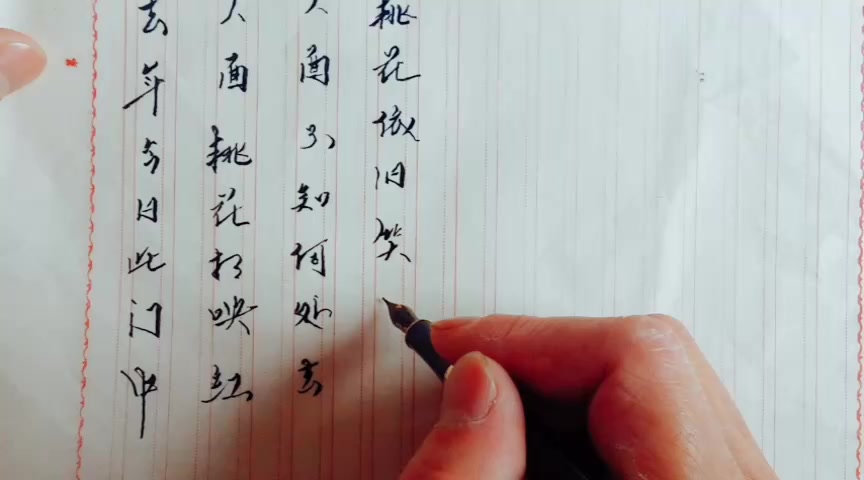 去年今日此门中
人面桃花相映红
人面不知何处去
桃花依旧笑